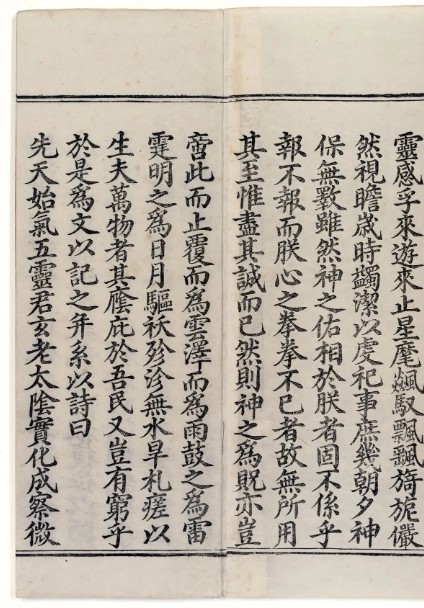 靈感孚來遊來止星麾飈馭飄飄旖旎儼
然視瞻歲時蠲潔以虔祀事庶幾朝夕神
保無斁雖然神之佑相於朕者固不係乎
報不報而朕心之拳拳不已者故無所用
其至惟盡其誠而已然則神之為貺亦豈
啻此而止覆而為雲澤而為雨鼓之為雷
霆明之為日月驅祅殄沴無水旱札瘥以
生夫萬物者其廕庇於吾民又豈有窮乎
於是為文以記之并系以詩曰
先天始氣五靈君玄老太陰實化成察微